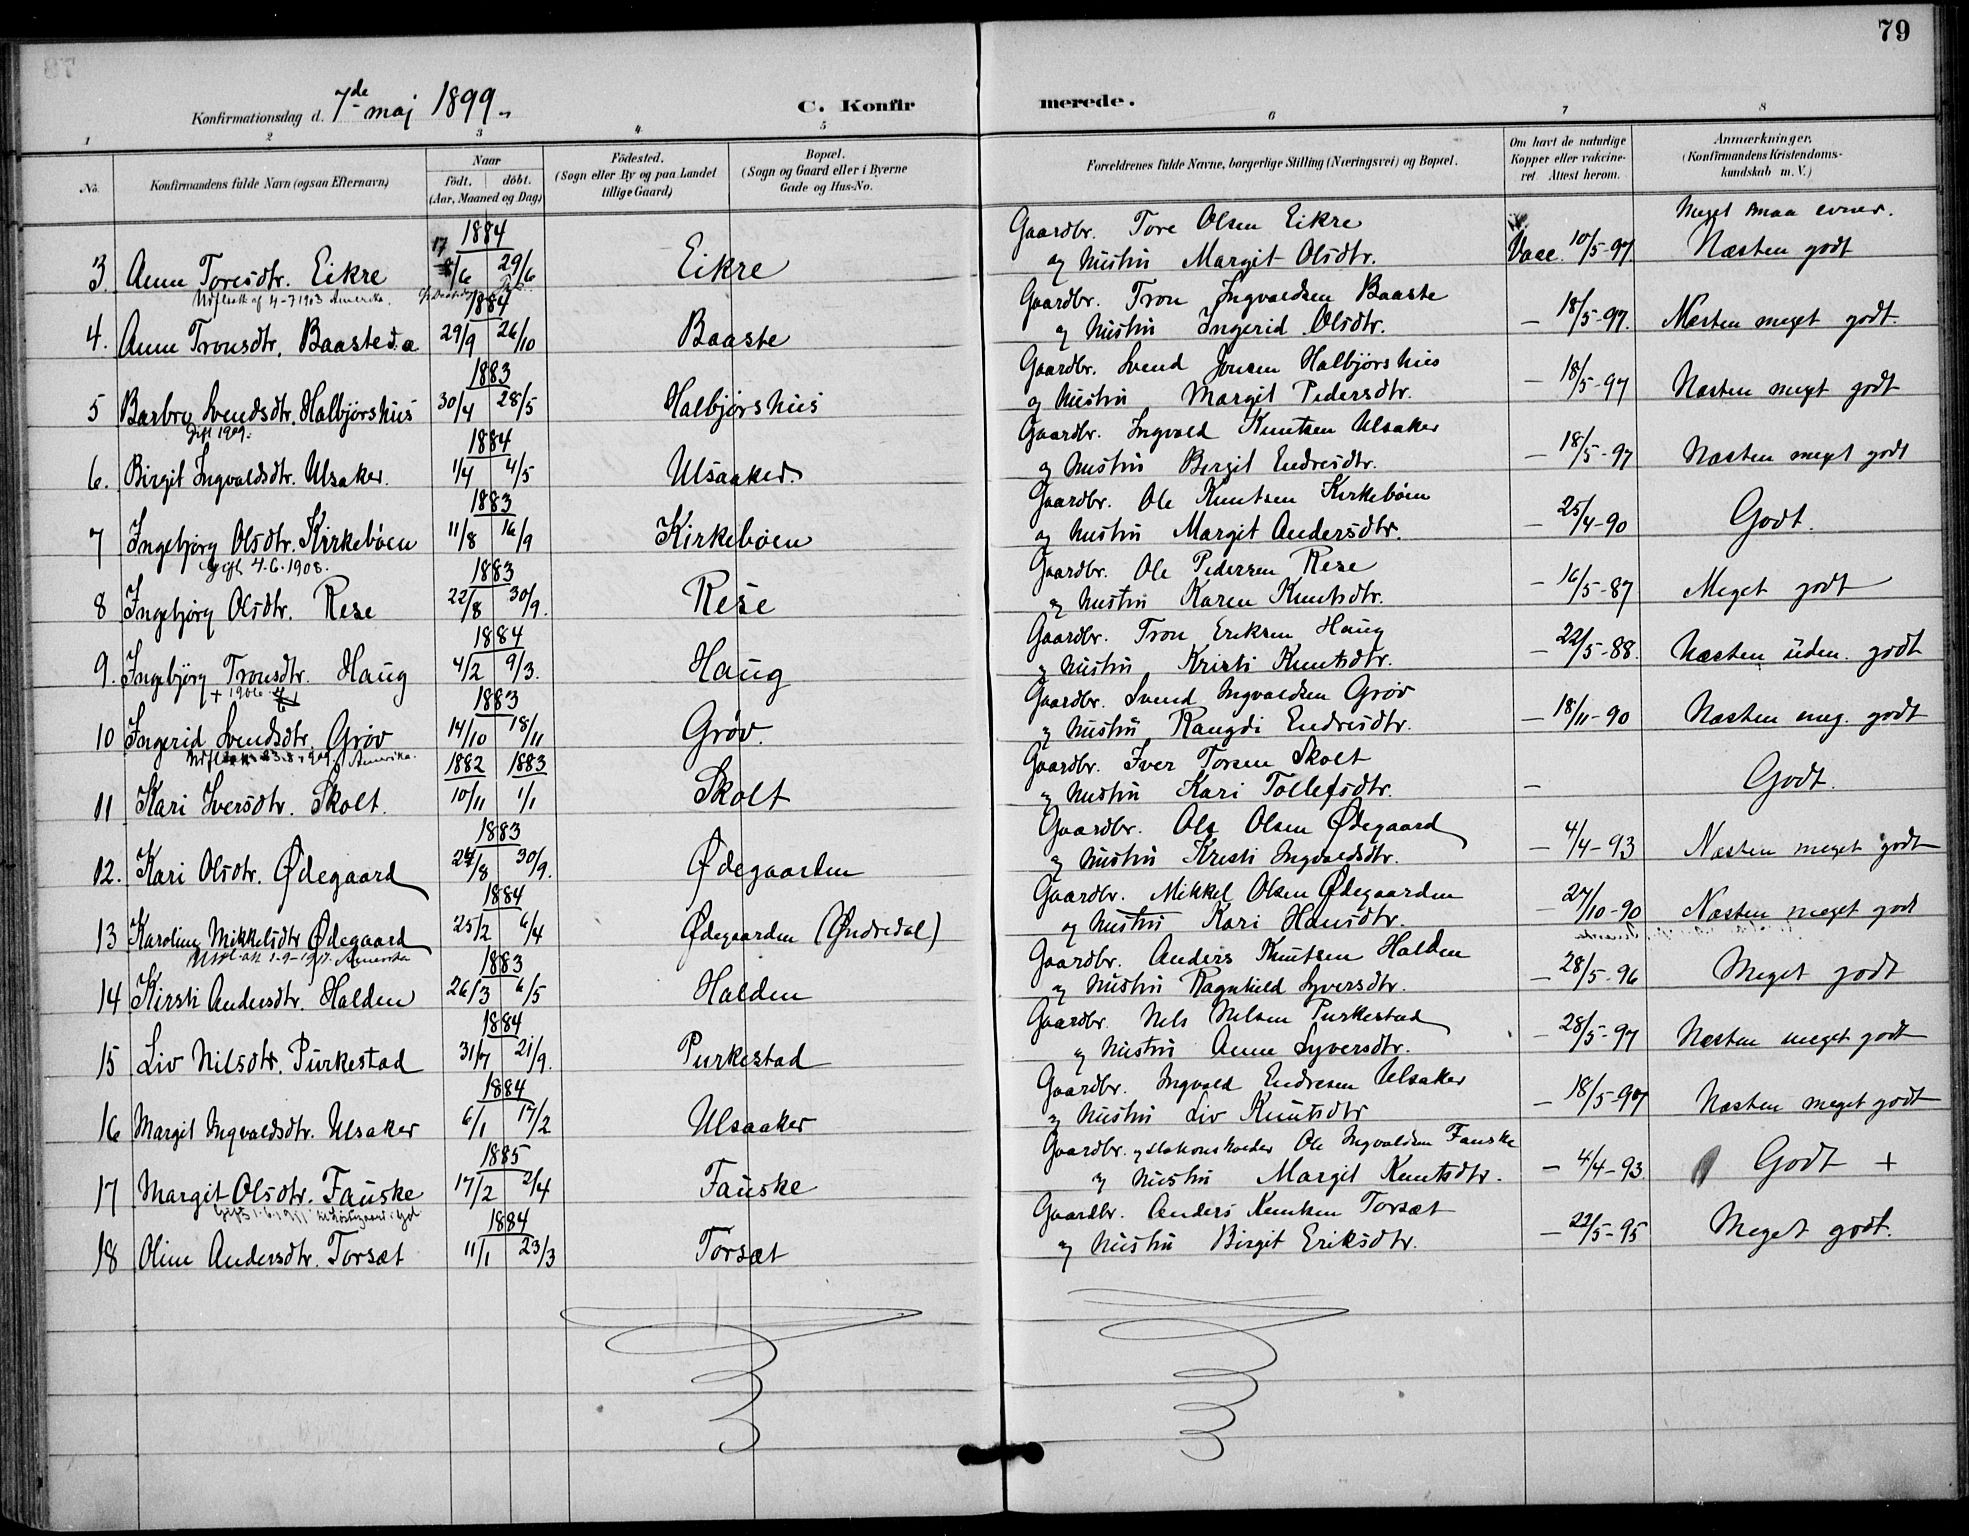 79
Konfirmationsdag d. 7de maj 1899.
C. Konfirmerede.
1 2 3 4 5 6 7 8
No.
Konfirmandens fulde Navn (ogsaa Efternavn)
Naar
födt. döbt.
(Aar, Maaned og Dag)
Födested.
(Sogn eller By og paa Landet
tillige Gaard)
Bopæl.
(Sogn og Gaard eller i Byerne
Gade og Hus-No.
Forældrenes fulde Navne, borgerlige Stilling (Næringsvei) og Bopæl.
Om havt de naturlige
Kopper eller vakcine-
ret. Attest herom.
Anmærkninger.
(Konfirmandens Kristendoms-
kundskab m. V.)
1884 Gaardbr. Tore Olsen Eikre Meget smaa evner.
3. Anne Toresdtr. Eikre 17/6 29/6 Eikre og hustru Margit Olsdtr. Vacc. 10/5-97 Næsten godt
4-7 1903 Amerika.
1884 Gaardbr. Tron Ingvaldsen Baaste
4. Anne Tronsdtr. Baaste d.æ 29/9 26/10 Baaste og hustru Ingerid Olsdtr. — 18/5-97. Næsten meget godt.
1883 Gaardbr. Svend Jonsen Halbjörshus
5 Barbro Svendsdtr. Halbjörshus 30/4 28/5 Halbjørshus og hustru Margit Pedersdtr. — 18/5-97 Næsten meget godt
Gift 1909.
1884 Gaardbr. Ingvald Knutsen Ulsaker
6. Birgit Ingvaldsdtr. Ulsaker. 1/4 4/5 Ulsaaker. og hustru Birgit Endresdtr. — 18/5-97 Næsten meget godt
1883 Gaardbr. Ole Knutsen Kirkebøen
7 Ingebjørg Olsdtr. Kirkebøen 11/8 16/9 Kirkebøen og hustru Margit Andersdtr. — 25/4-90 Godt.
Gift 4.6.1908.
1883 Gaardbr. Ole Pedersen Rese
8 Ingebjørg Olsdtr. Rese 22/8 30/9. Rese og hustru Karen Knutsdtr. — 16/5-87 Meget godt
1884 Gaardbr. Tron Eriksen Haug
9. Ingebjörg Tronsdtr. Haug 4/2 9/3. Haug og hustru Kristi Knutsdtr. — 22/5-88. Næsten uden. godt
+ 1906
1883 Gaardbr. Svend Ingvaldsen Grøv
10 Ingerid Svendsdtr. Grøv 14/10 18/11 Grøv. og hustru Rangdi Endresdtr. — 18/11-90 Næsten meg. godt
Amerika.
1882 1883 Gaardbr. Iver Torsen Skolt
11 Kari Iversdtr. Skolt. 10/11 1/1 Skolt og hustru Kari Tollefsdtr. — Godt.
1883 Gaardbr. Ole Olsen Ødegaard
12. Kari Olsdtr. Ødegaard 24/8 30/9. Ødegaarden og hustru Kristi Ingvaldsdtr. — 4/4-93 Næsten meget godt
1884 Gaardbr. Mikkel Olsen Ødegaarden
13 Karoline Mikkelsdtr Ødegaard 25/2 6/4 Ødegaarden (Øndredal) og hustru Kari Hansdtr. — 27/10-90 Næsten meget godt
Amerika
1883 Gaardbr. Anders Knutsen Halden
14 Kirsti Andersdtr. Halden 26/3 6/5 Halden og hustru Ragnhild Syversdtr. — 28/5-96 Meget godt
1884 Gaardbr. Nels Nelsen Purkestad
15 Liv Nilsdtr. Purkestad 31/7 21/9. Purkestad og hustru Anne Syversdtr. — 28/5-97 Næsten meget godt
1884 Gaardbr. Ingvald Endresen Ulsaker
16 Margit Ingvaldsdtr. Ulsaker 6/1 17/2 Ulsaaker og hustru Liv Knutsdtr — 18/5-97 Næsten meget godt
1885 Gaardbr. og stationsholder Ole Ingvaldsen Fauske
17 Margit Olsdtr. Fauske 17/2 2/4 Fauske og hustru Margit Knutsdtr. — 4/4-93. Godt +
Gift 1.6.1911
1884 Gaardbr. Anders Knutsen Torsæt
18 Oline Andersdtr. Torsæt 11/1 23/3 Torsæt og hustru Birgit Eriksdtr. — 22/5-95 Meget godt.